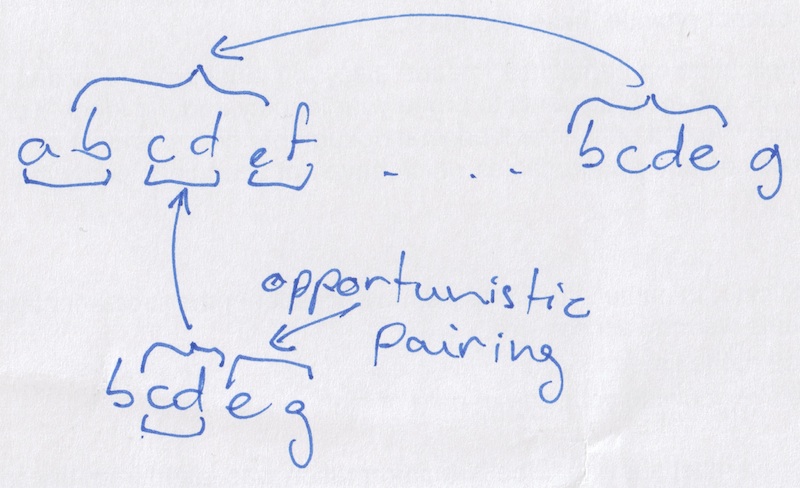 ab cd ef . . . bcde g
opportunistic
pairing
bcdeg